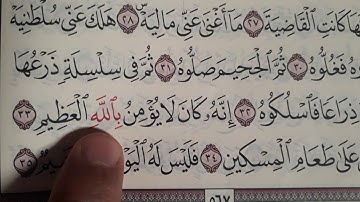 كَانَتِ ٱلْقَاضِيَةَ ٢٧ مَآ أَغْنَىٰ عَنِّى مَالِيَهْ ۜ ٢٨ هَلَكَ عَنِّى سُلْطَٰنِيَهْ
فَغُلُّوهُ ٣٠ ثُمَّ ٱلْجَحِيمَ صَلُّوهُ ٣١ ثُمَّ فِى سِلْسِلَةٍ ذَرْعُهَا
ذِرَاعًا فَٱسْلُكُوهُ ٣٢ إِنَّهُۥ كَانَ لَا يُؤْمِنُ بِٱللَّهِ ٱلْعَظِيمِ ٣٣
عَلَىٰ طَعَامِ ٱلْمِسْكِينِ ٣٤ فَلَيْسَ لَهُ ٱلْيَوْمَ ٣٥
٥٦٧